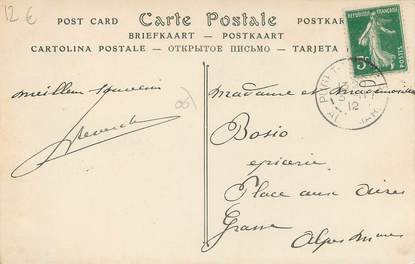 12 €
POST CARD Carte Postale POSTKARTE
BRIEFKAART - POSTKAART
CARTOLINA POSTALE - ОТКРЫТОЕ ПИСЬМО - TARJETA
REPUBLIQUE FRANÇAISE
5c
POSTES
12
meilleur souvenir
(06)
Madame et Mademoiselle
Bosio
epicerie
Place aux Aires
Grasse
Alpes Mmes